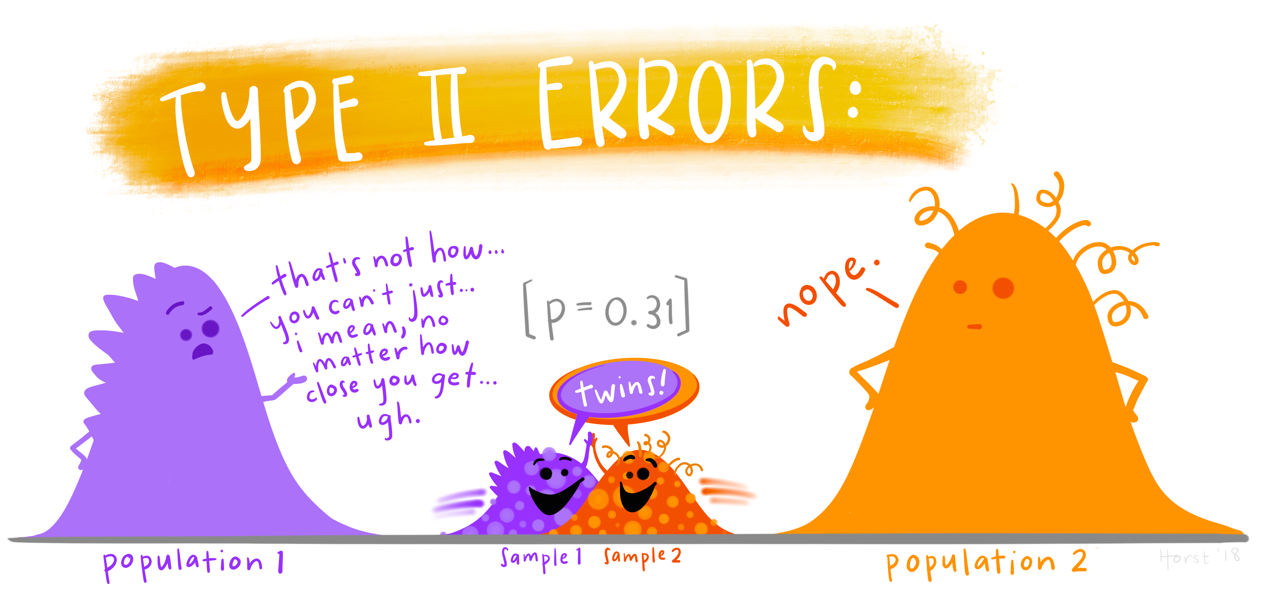 TYPE II ERRORS:
that's not how...
you can't just...
i mean, no
matter how
close you get...
ugh.
[p = 0.31]
twins!
nope.
population 1
sample 1
sample 2
population 2
Horst '18